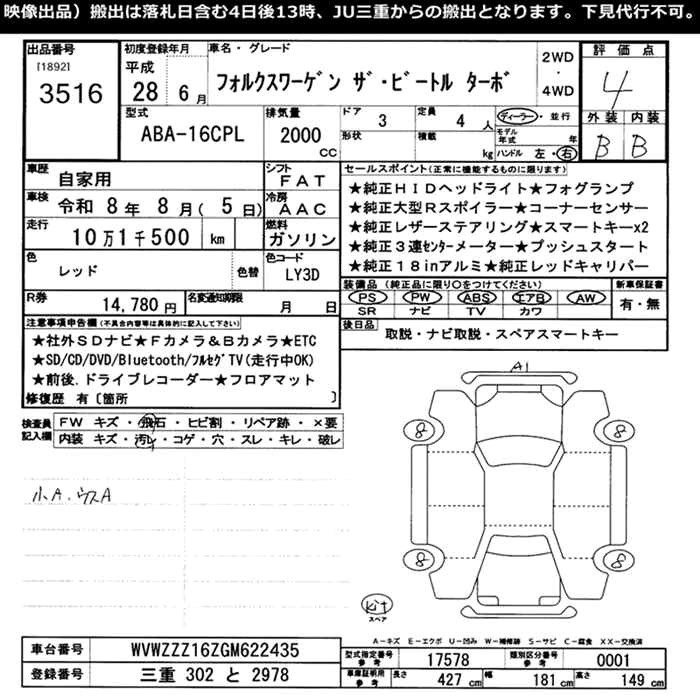 映像出品）搬出は落札日含む4日後13時、JU三重からの搬出となります。下見代行不可。
出品番号 初度登録年月 車名・グレード 評価点
[1892] 平成 2WD
3516 28 6月 フォルクスワーゲン ザ・ビートル ターボ ・ 4
4WD
型式 排気量 ドア 3 定員 4人 ディーラー・並行 外装 内装
ABA-16CPL 2000 CC 形状 積載 kg モデル年式 年 B B
ハンドル 左・右
車歴 自家用 シフト FAT セールスポイント(正常に機能するものに限ります)
車検 令和 8年 8月( 5日) 冷房 AAC ★純正HIDヘッドライト★フォグランプ
★純正大型Rスポイラー★コーナーセンサー
走行 10万1千500 km 燃料 ガソリン ★純正レザーステアリング★スマートキーx2
★純正3連センターメーター★プッシュスタート
色 レッド 色替 色コード LY3D ★純正18inアルミ★純正レッドキャリパー
装備品(純正品に限り○をつけてください) 新車保証書
R券 14,780円 名変通知期限 月 日 PS PW ABS エアB AW 有・無
SR ナビ TV カワ
注意事項申告欄(不具合内容等は具体的に記入して下さい) 後日品 取説・ナビ取説・スペアスマートキー
★社外SDナビ★Fカメラ&Bカメラ★ETC
★SD/CD/DVD/Bluetooth/フルセグTV(走行中OK)
★前後.ドライブレコーダー★フロアマット
修復歴 有〔箇所 〕
検査員記入欄 FW キズ・飛石・ヒビ割・リペア跡・×要
内装 キズ・汚レ・コゲ・穴・スレ・キレ・破レ
A1
8 8
小A.ウスA
8 8
Kit
スペア
A-キズ E-エクボ U-凹み W-補修跡 S-サビ C-腐食 XX-交換済
車台番号 WVWZZZ16ZGM622435 型式指定番号 参考 17578 類別区分番号 参考 0001
登録番号 三重 302 と 2978 車庫証明用 参考 長さ 427 cm 幅 181 cm 高さ 149 cm